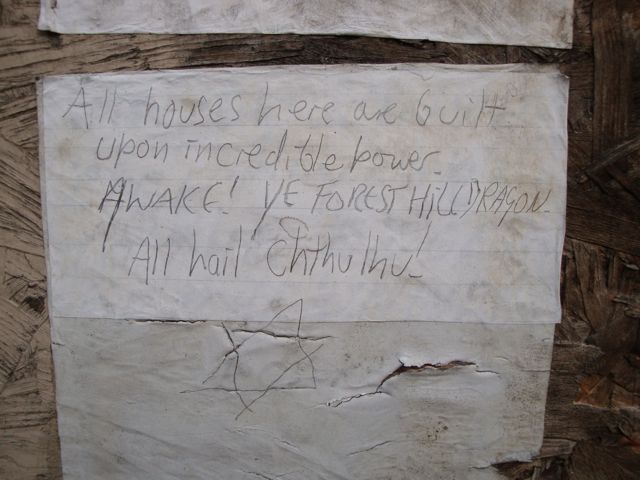 All houses here are built
upon incredible power.
AWAKE! YE FOREST HILL DRAGON.
All hail Chthulhu!